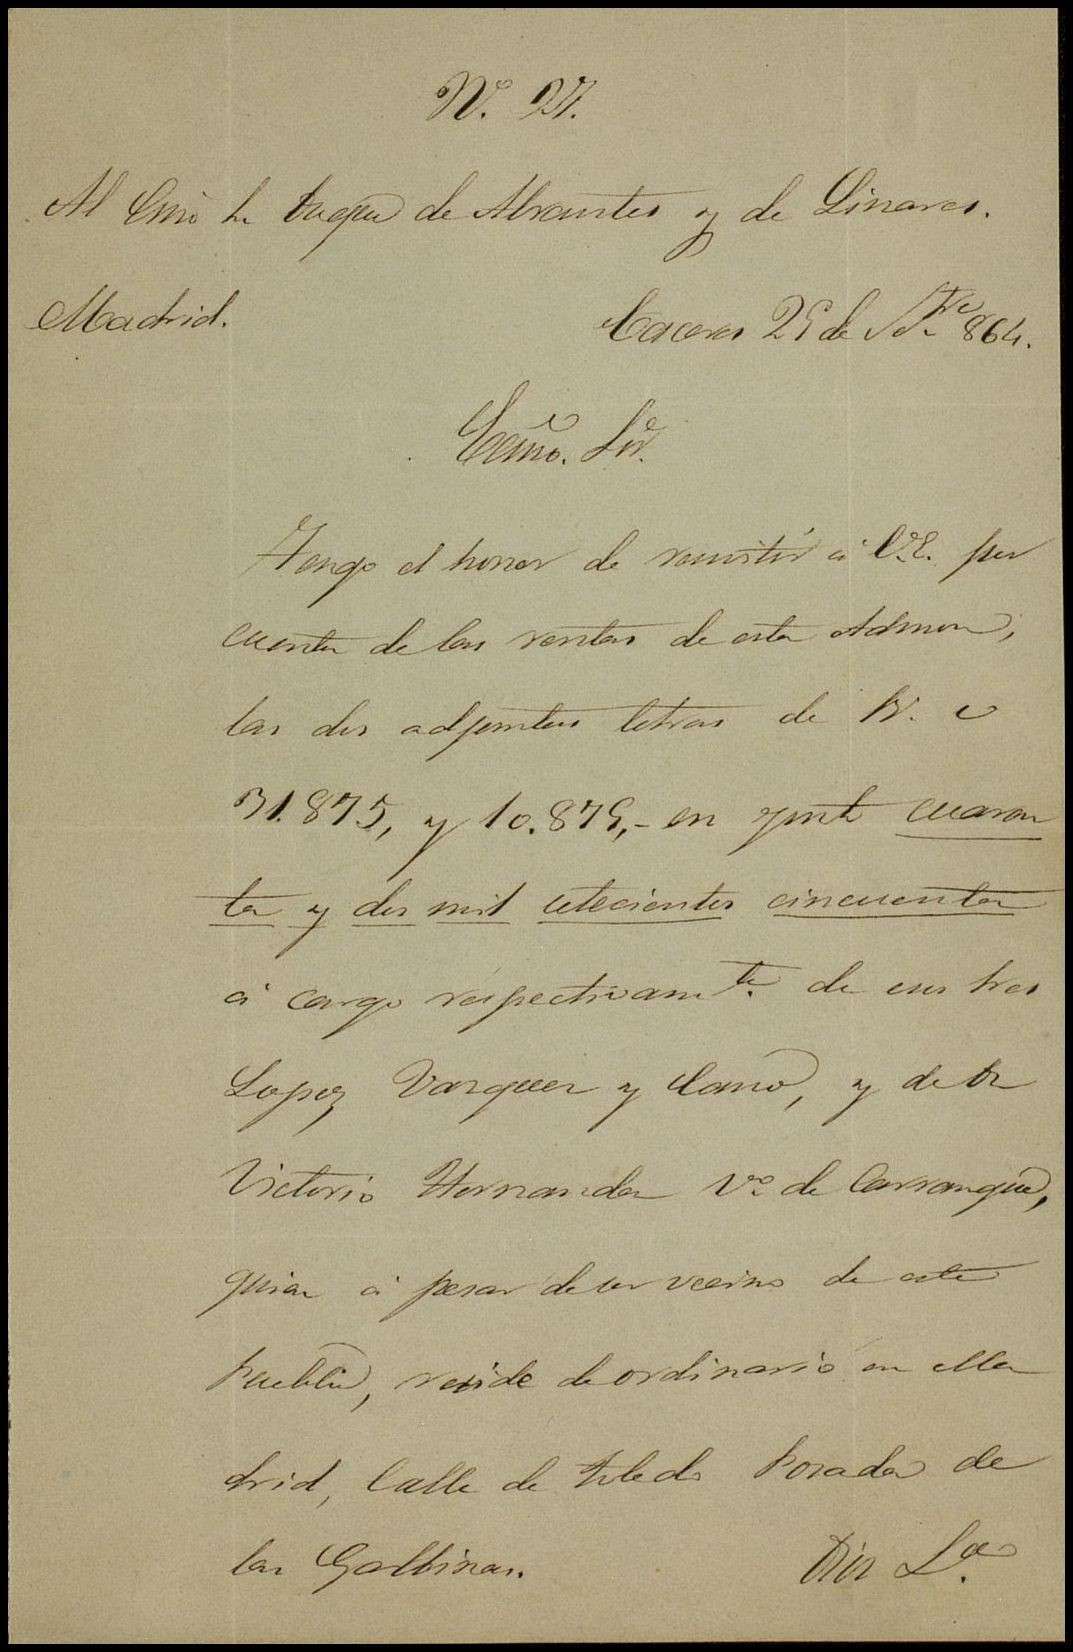 Nº. 27.
Al Exmo Sr Duque de Abrantes y de Linares.
Madrid.
Caceres 29 de Stbre 864.
Excmo. Sor.
Tengo el honor de remitir á V.E. por
cuenta de las rentas de esta Admon,
las dos adjuntas letras de Rs. vn
31.875, y 10.875,- en junto cuaren
ta y dos mil setecientos cincuenta
á cargo respectivamte. de esos Sres
Lopez Vazquez y Cano, y de Dn
Victorio Hernandez Vº de Carranque,
quien á pesar de ser vecino de este
Pueblo, reside de ordinario en Ma
drid, Calle de Toledo Posada de
las Gallinas. Dios La.